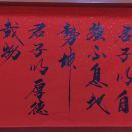 君子以自
強不息地
勢坤
君子以厚德
載物